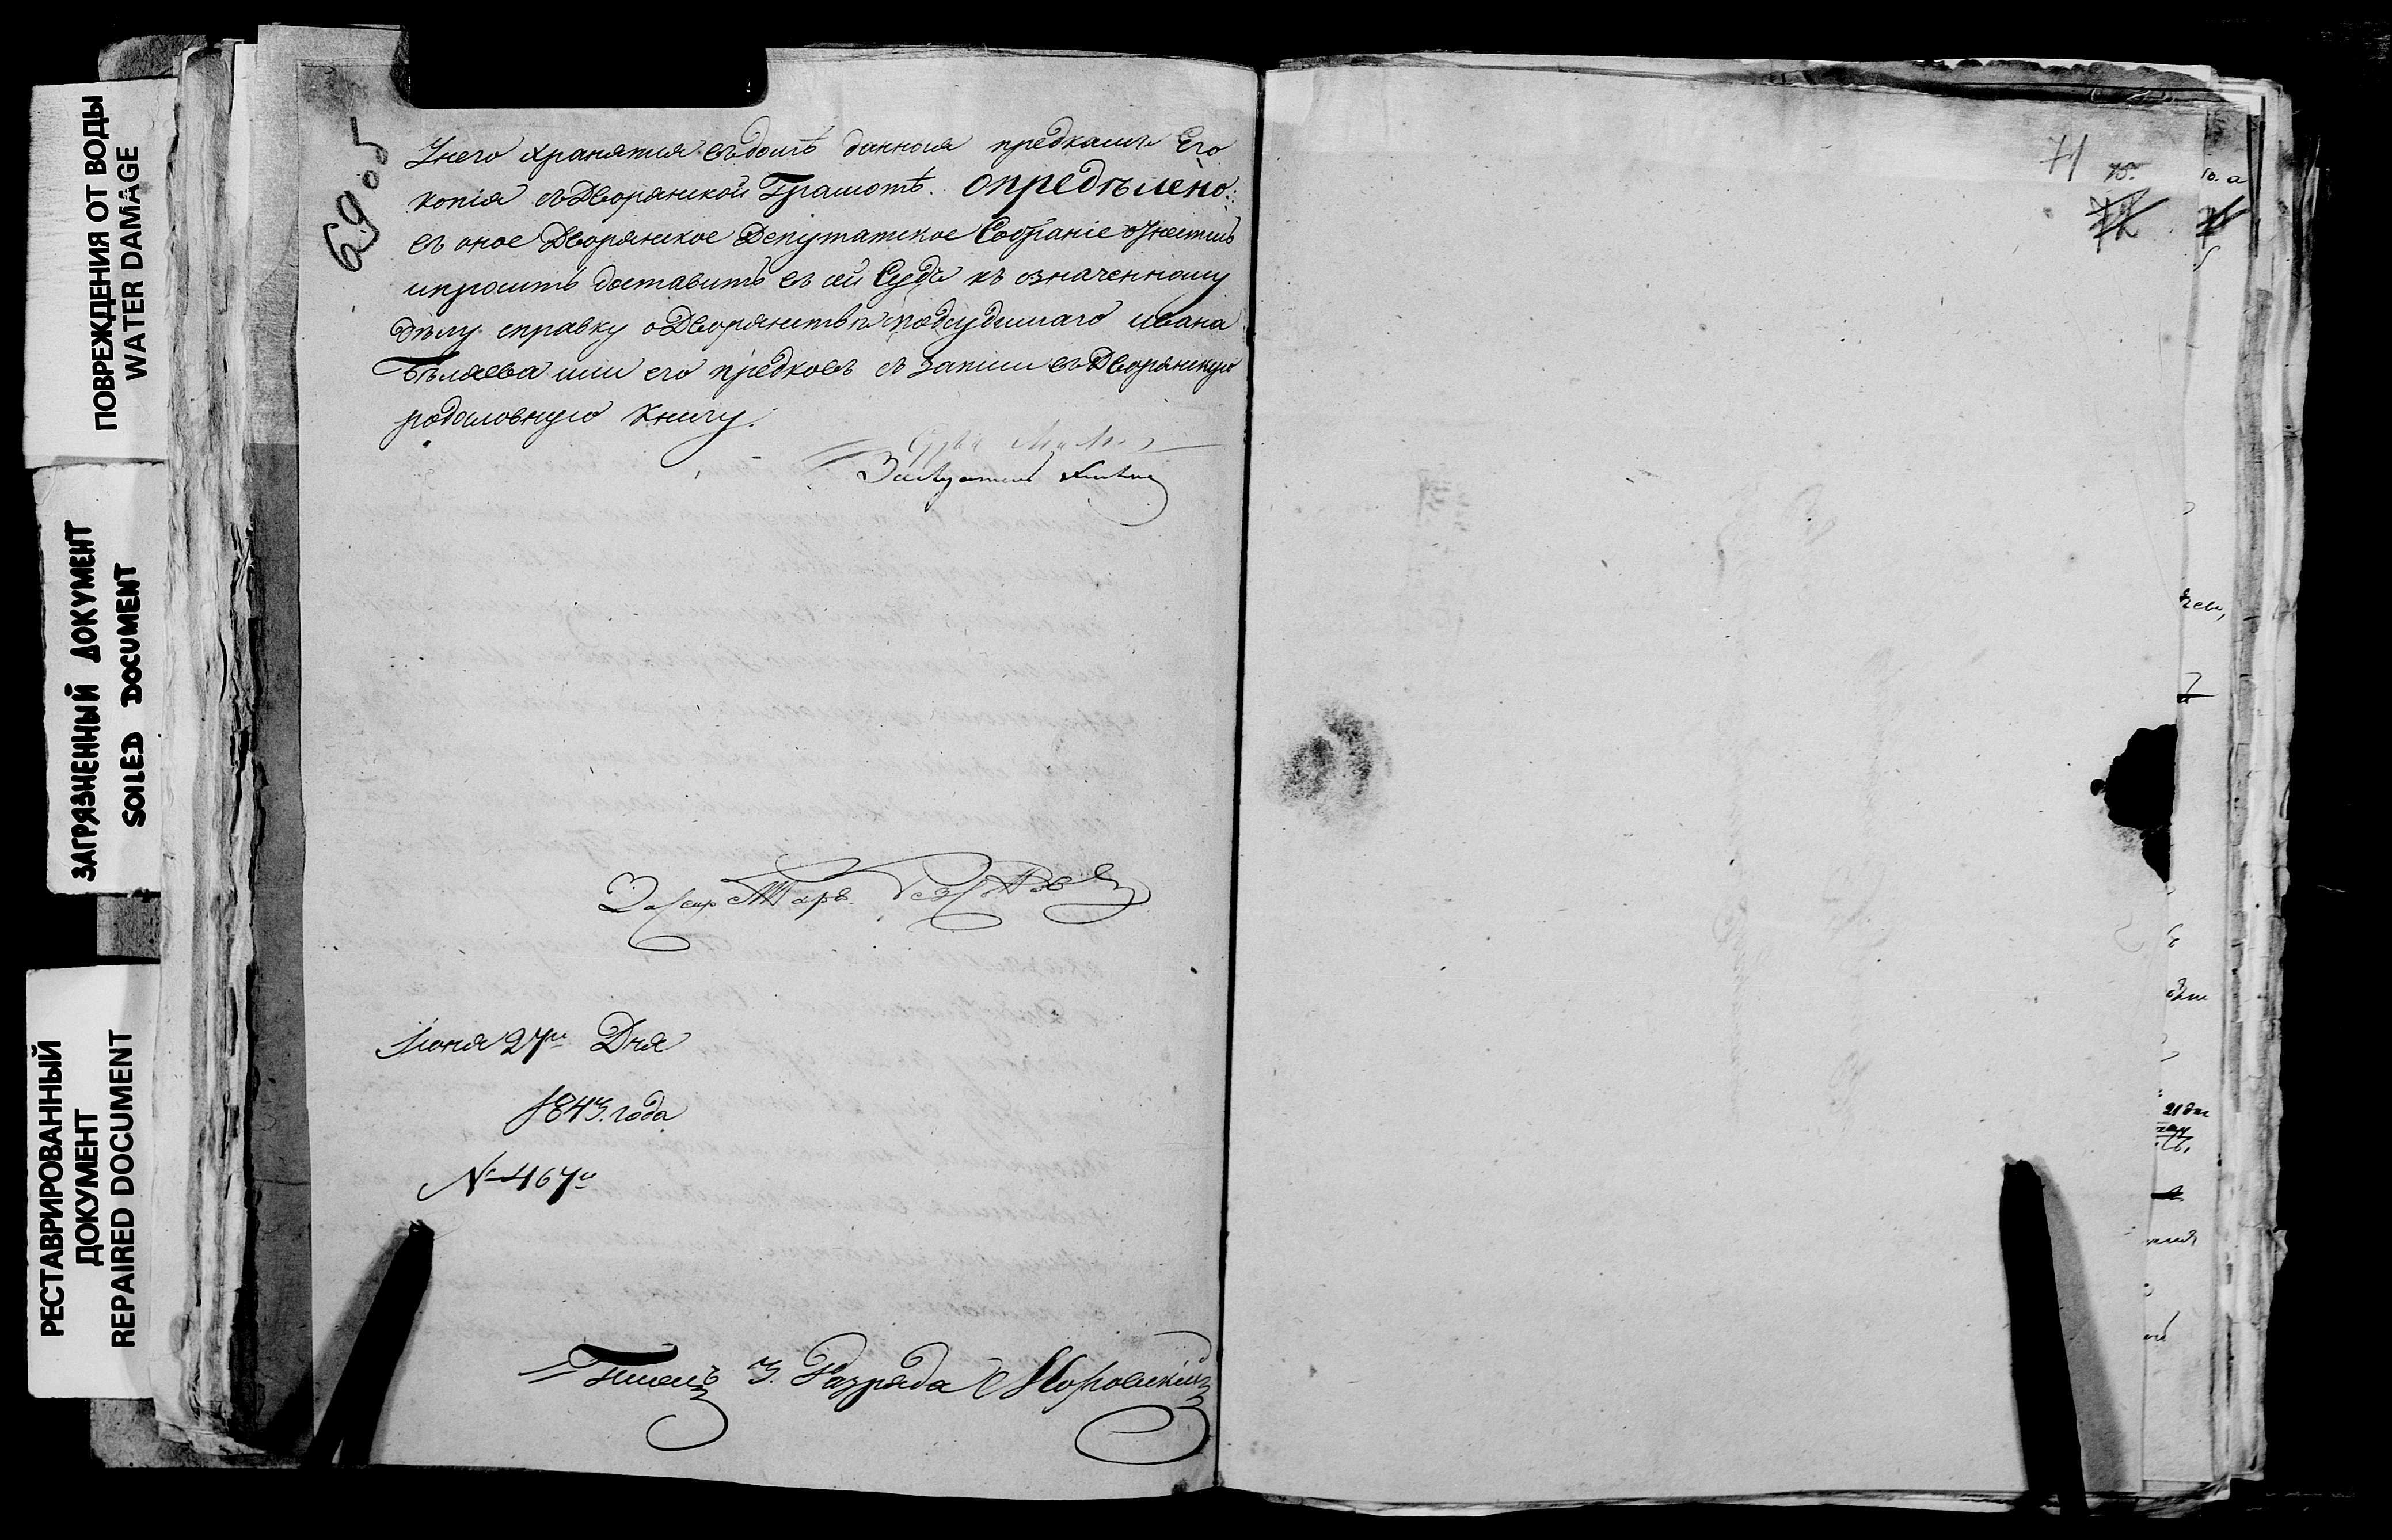 ПОВРЕЖДЕНИЯ ОТ ВОДЫ
WATER DAMAGE
ЗАГРЯЗНЕННЫЙ ДОКУМЕНТ
SOILED DOCUMENT
РЕСТАВРИРОВАННЫЙ
ДОКУМЕНТ
REPAIRED DOCUMENT
69 об
Унего хранятся въдомѣ данная предкамъ Его
копія съДворянской Грамотѣ. Опредѣлено:
въ оное Дворянское Депутатское Собраніе
ипросить доставить въ сей Судъ къ означенному
дѣлу справку оДворянствѣ подсудимаго ивана
Бѣляева или его предковъ съ записи въДворянскую
родословную книгу.
Судья
Засѣдатель
Іюня 27го Дня
1843. года
№ 467й
Писецъ 3. Разряда
71
75.
72